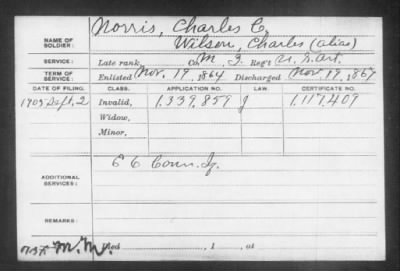 NAME OF SOLDIER: Norris, Charles C.
Wilson, Charles (alias)
SERVICE: Late rank, Co. M 2 Reg't U.S. Art.
TERM OF SERVICE: Enlisted Nov. 19, 1864 Discharged Nov. 19, 1867
DATE OF FILING. CLASS. APPLICATION NO. LAW. CERTIFICATE NO.
1905 Sept. 2 Invalid, 1,339,859 J 1,117,409
Widow,
Minor,
ADDITIONAL SERVICES: E 6 Conn. Inf.
REMARKS:
M.W. Died , 1 , at